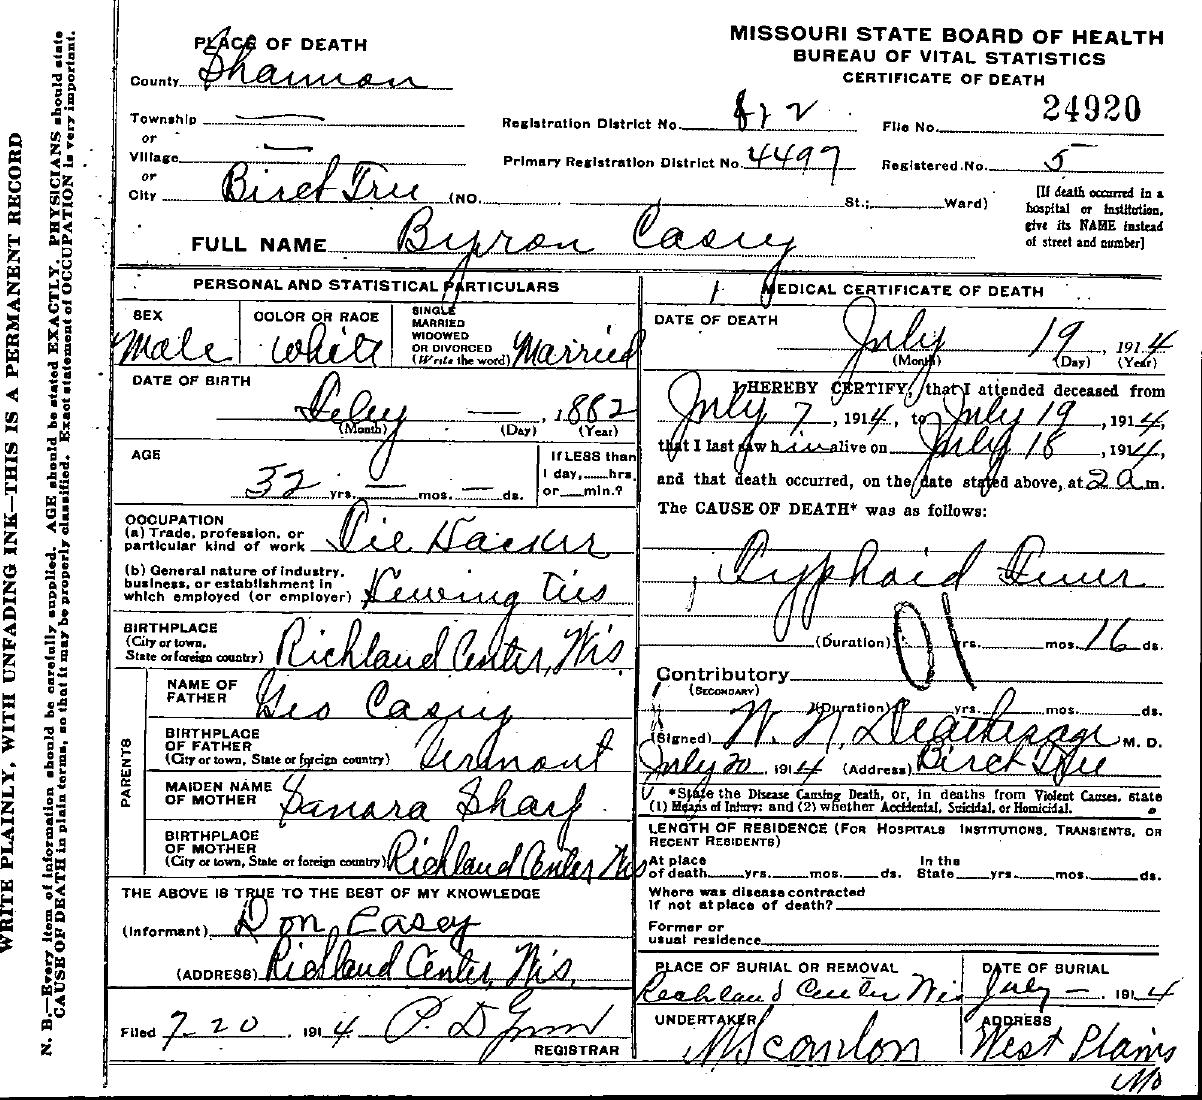 MISSOURI STATE BOARD OF HEALTH
BUREAU OF VITAL STATISTICS
CERTIFICATE OF DEATH
PLACE OF DEATH
County Shannon
Township —
or
Village —
or
City Birch Tree (NO. St.; Ward)
Registration District No. 812
File No. 24920
Primary Registration District No. 4497
Registered No. 5
[If death occurred in a
hospital or institution,
give its NAME instead
of street and number]
FULL NAME Byron Casey
PERSONAL AND STATISTICAL PARTICULARS
SEX
Male
COLOR OR RACE
White
SINGLE
MARRIED
WIDOWED
OR DIVORCED
(Write the word) Married
DATE OF BIRTH
— , 1882
(Month) (Day) (Year)
AGE
32 yrs. — mos. — ds.
If LESS than
1 day, hrs.
or min.?
OCCUPATION
(a) Trade, profession, or
particular kind of work Tie Hacker
(b) General nature of industry,
business, or establishment in
which employed (or employer) Hewing Ties
BIRTHPLACE
(City or town,
State or foreign country) Richland Center, Wis.
PARENTS
NAME OF
FATHER Geo Casey
BIRTHPLACE
OF FATHER
(City or town, State or foreign country) Vermont
MAIDEN NAME
OF MOTHER Sharp
BIRTHPLACE
OF MOTHER
(City or town, State or foreign country) Richland Center Wis
THE ABOVE IS TRUE TO THE BEST OF MY KNOWLEDGE
(Informant) Don Casey
(ADDRESS) Richland Center, Wis,
Filed 7-20, 1914
REGISTRAR
MEDICAL CERTIFICATE OF DEATH
DATE OF DEATH
July 19, 1914
(Month) (Day) (Year)
I HEREBY CERTIFY, that I attended deceased from
July 7, 1914, to July 19, 1914,
that I last saw him alive on July 18, 1914,
and that death occurred, on the date stated above, at 2 a m.
The CAUSE OF DEATH* was as follows:
Typhoid Fever
01
(Duration) yrs. mos. 16 ds.
Contributory
(SECONDARY)
(Duration) yrs. mos. ds.
(Signed) W. N. Deatherage M. D.
July 20, 1914 (Address) Birch Tree
*State the Disease Causing Death, or, in deaths from Violent Causes, state
(1) Means of Injury; and (2) whether Accidental, Suicidal, or Homicidal.
LENGTH OF RESIDENCE (For Hospitals Institutions, Transients, or
Recent Residents)
At place
of death yrs. mos. ds.
In the
State yrs. mos. ds.
Where was disease contracted
If not at place of death?
Former or
usual residence
PLACE OF BURIAL OR REMOVAL
Richland Center Wis
DATE OF BURIAL
July — 1914
UNDERTAKER
ADDRESS
West Plains
Mo
WRITE PLAINLY, WITH UNFADING INK—THIS IS A PERMANENT RECORD
N. B.—Every item of information should be carefully supplied. AGE should be stated EXACTLY. PHYSICIANS should state
CAUSE OF DEATH in plain terms, so that it may be properly classified. Exact statement of OCCUPATION is very important.